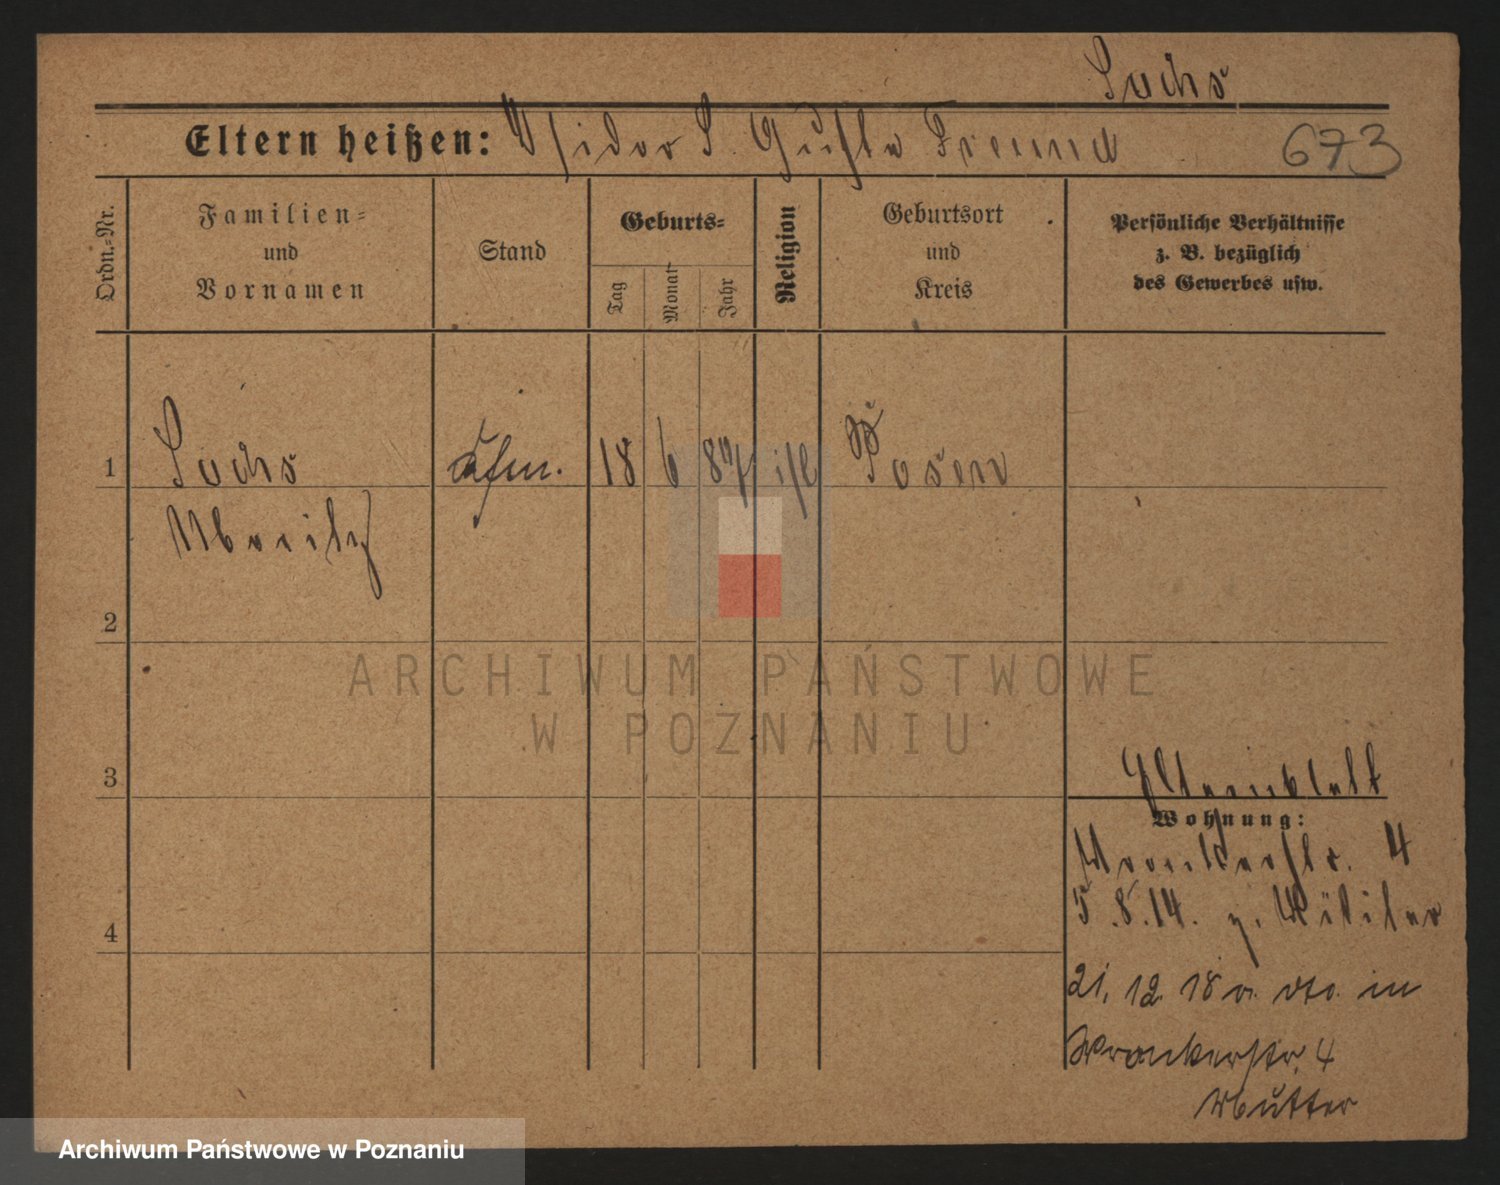 Sachs
Eltern heißen: Isidor S. Gusta Freund
673
Ordn.-Nr.
Familien- und Vornamen
Stand
Geburts-
Tag
Monat
Jahr
Religion
Geburtsort und Kreis
Persönliche Verhältnisse
z. B. bezüglich
des Gewerbes usw.
1 Sachs Kfm. 18 6 87 isr Posen
Moritz
2
ARCHIWUM PAŃSTWOWE
W POZNANIU
3
Elternblatt
Wohnung:
Wronkerstr. 4
5.8.14. z. Militär
4
21.12.18 v. dto. in
Wronkerstr. 4
Mutter
Archiwum Państwowe w Poznaniu